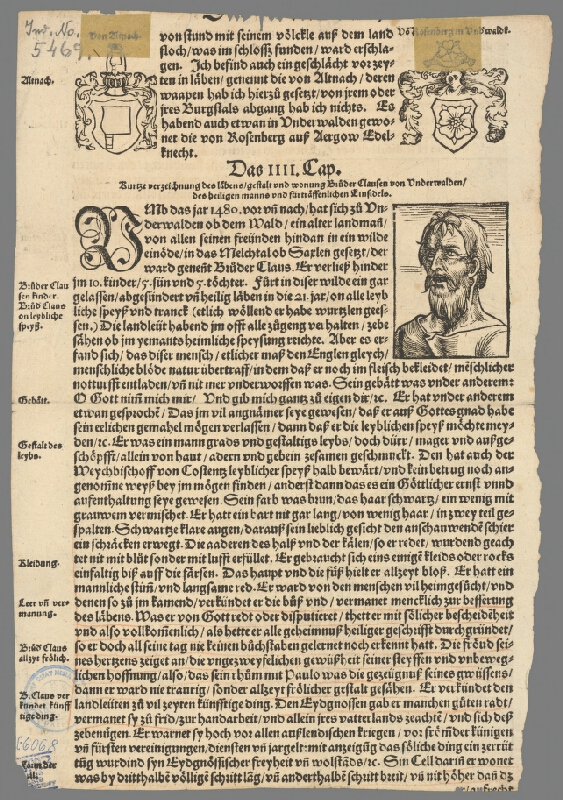 Ind. No.
5469.
Von Altnach.
Vō Rosenberg in Vnderwaldē.
von stund mit seinem völckle auß dem land
floch/ was im schlossz funden/ ward erschla-
gen. Ich befind auch eingeschlächt vor zey-
ten in läben/ genennt die von Altnach/ deren
waapen hab ich hierzů gesetzt/ von jrem oder
jres Burgstals abgang hab ich nichts. Es
habend auch etwan in Vnderwalden gewo-
net die von Rosenberg auß Aergow Edel-
knecht.
Altnach.
Das IIII. Cap.
Kurtze verzeichnung des läbens/ gestalt vnd wonung Brůder Clausen von Vnderwalden/
des heiligen manns vnd fürträffenlichen Einsidels.
VMb das jar 1480. vor vñ nach/ hat sich zů Vn-
derwalden ob dem Wald/ ein alter landmañ/
von allen seinen freünden hindan in ein wilde
einöde/ in das Melchtal ob Saxlen gesetzt/ der
ward genent Brůder Claus. Er verließ hinder
jm 10. kinder/ 5. sün vnd 5. töchter. Fürt in diser wilde ein gar
gelassen/ abgesündert vñ heilig läben in die 21. jar/ on alle leyb
liche speyß vnd tranck (etlich wöllend er habe wurtzlen gees-
sen.) Die landleüt habend jm offt alle zůgeng verhalten/ zebe
sähen ob jm yemants heimliche speysung reichte. Aber es er-
fand sich/ das diser mensch/ etlicher maß den Englen gleych/
menschliche blöde natur übertraff/ in dem daß er noch im fleisch bekleidet/ mēschlicher
notturfft entladen/ vñ nit mer vnderworffen was. Sein gebätt was vnder anderem:
O Gott nim̄ mich mir/ Vnd gib mich gantz zů eigen dir/ ꝛc. Er hat vnder anderem
etwan gesprochē/ Das jm vil angnämer seye gewesen/ daß er auß Gottes gnad habe
sein erlichen gemahel mögen verlassen/ dann daß er die leyblichen speyß möchte mey-
den/ ꝛc. Er was ein mann grads vnd gestaltigs leybs/ doch dürr/ mager vnd außge-
schöpfft/ allein von haut/ adern vnd gebein zesamen geschmuckt. Den hat auch der
Weychbischoff von Costentz leyblicher speyß halb bewärt/ vnd kein betrug noch an-
genom̄ne weyß bey jm mögen finden/ anderst dann das es ein Göttlicher ernst vnnd
aufenthaltung seye gewesen. Sein farb was brun/ das haar schwartz/ ein wenig mit
grauwem vermischet. Er hatt ein bart nit gar lang/ von wenig haar/ in zwey teil ge-
spalten. Schwartze klare augen/ darauß sein lieblich gesicht den anschauwenden schier
ein schräcken erwegt. Die aaderen des halß vnd der kälen/ so er redet/ wurdend geach
tet nit mit blůt sonder mit lufft erfüllet. Er gebraucht sich eins einigē kleids oder rocks
einfaltig biß auff die färsen. Das haupt vnd die fůß hielt er allzeyt bloß. Er hatt ein
mannliche stim̄/ vnd langsame red. Er ward von den menschen vil heimgesůcht/ vnd
denen so zů jm kamend/ verkündet er die bůß vnd/ vermanet mencklich zur besserung
des läbens. Was er von Gott redt oder disputieret/ thett er mit sölicher bescheidēheit
vnd also vollkom̄enlich/ als hette er alle geheimnuß heiliger geschrifft durchgründet/
so er doch all seine tag nie keinen bůchstaben gelernet noch erkennt hatt. Die fröud sei-
nes hertzens zeiget an/ die vngezweyfelichen gewüßheit seiner steyffen vnd vnbeweg-
lichen hoffnung/ also/ das sein rhům mit Paulo was die gezeügnuß seines gwüssens/
dann er ward nie traurig/ sonder allzeyt frölicher gestalt gesähen. Er verkündet den
landleüten zů vil zeyten künfftige ding. Den Eydgnossen gab er manchen gůten radt/
vermanet sy zů frid/ zur handarbeit/ vnd allein jres vatterlands zeachtē/ vnd sich deß
zebenůgen. Er warnet sy hoch vor allen außlendischen kriegen/ vor frömbder künigen
vñ fürsten vereinigungen/ diensten vñ jargelt: mit anzeigūg das söliche ding ein zerrüt
tūg wurdind syn Eydgnössischer freyheit vñ wolstāds/ ꝛc. Sin Cell darin er wonet
was by dritthalbē völligē schritt läng/ vñ anderthalbē schritt breit/ vñ nit höher dañ dz
Brůder Clau
sen kinder.
Brůd Claus
on leybliche
speyß.
Gebätt.
Gestalt des
leybs.
Kleidung.
Leer vñ ver-
manung.
Brůd Claus
allzyt frölich.
B. Claus ver
kündet künff
tige ding.
66068